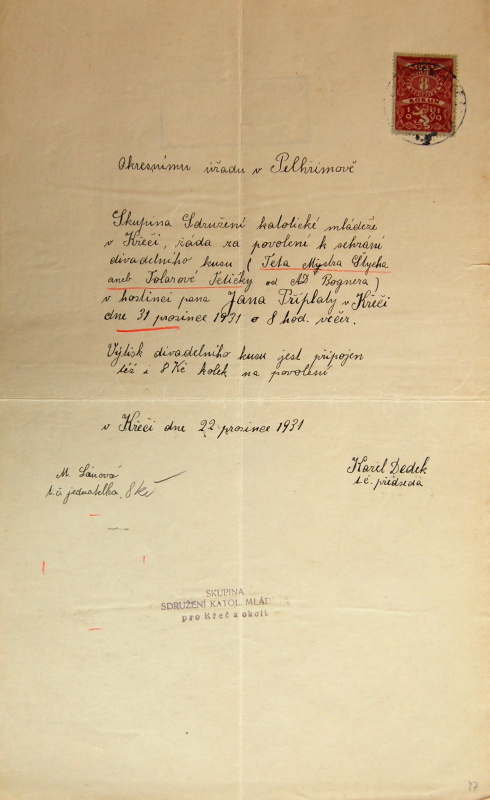 8
KORUN
Okresnímu úřadu v Pelhřimově
Skupina Sdružení katolické mládeže
v Křeči, žádá za povolení k sehrání
divadelního kusu (Teta Mistra Štycha
aneb Tolarové Tetičky od AD Bognera)
v hostinci pana Jana Příplaty v Křeči
dne 31 prosince 1931 o 8 hód. večěr.
Výtisk divadelního kusu jest připojen
též i 8 Kč kolek na povolení
v Křeči dne 22 prosince 1931
M. Lánová
t.č. jednatelka, 8 kč
Karel Dedek
t.č. předseda
SKUPINA
SDRUŽENÍ KATOL. MLÁD
pro Křeč a okolí
77